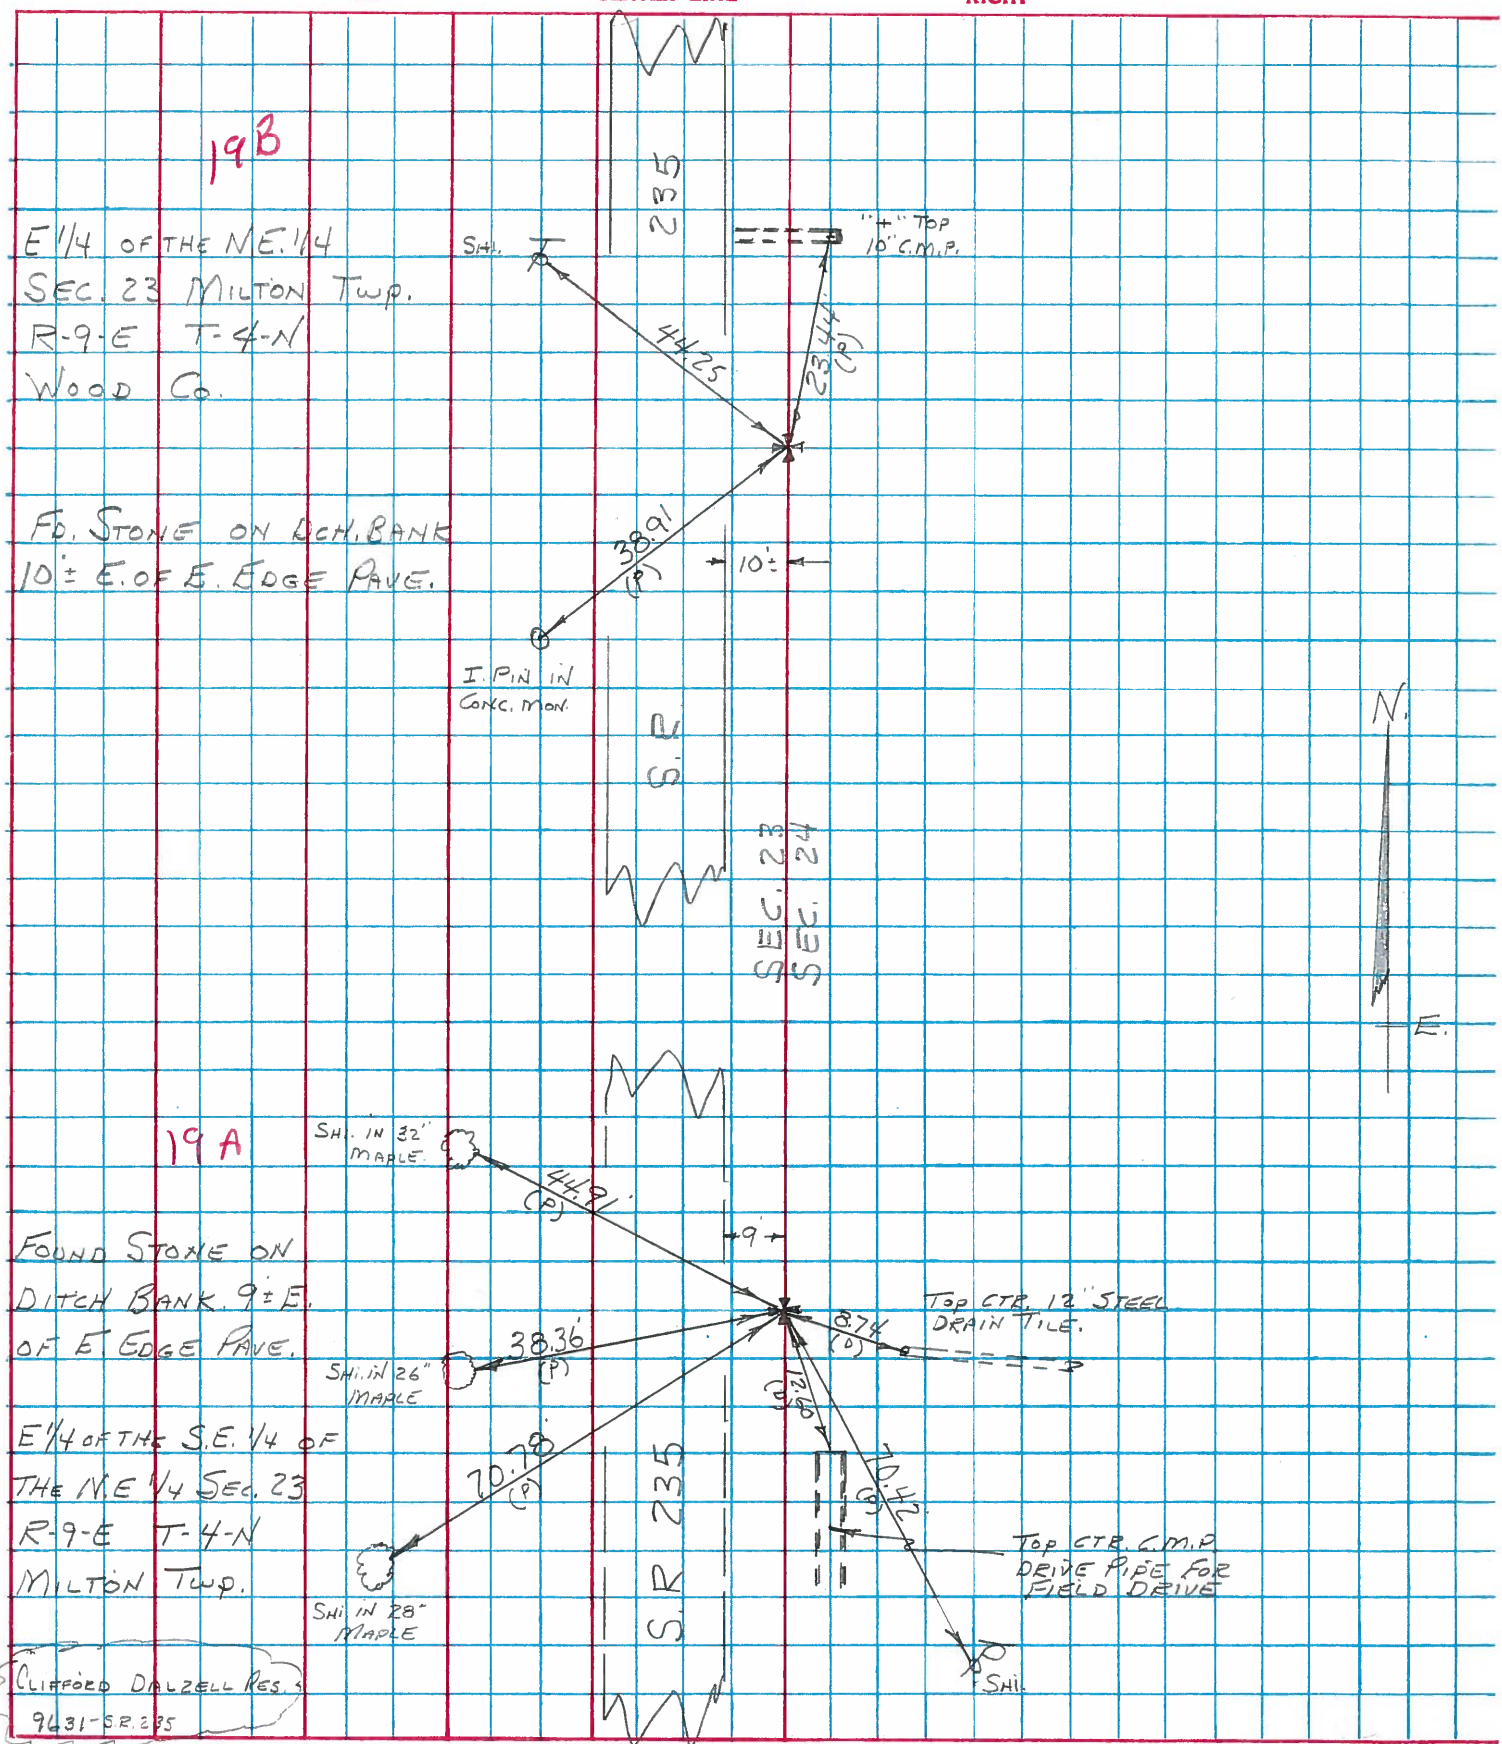 19B
E 1/4 OF THE N.E. 1/4
SEC. 23 MILTON TWP.
R-9-E T-4-N
WOOD CO.
FD. STONE ON DCH. BANK
10'± E. OF E. EDGE PAVE.
SHI.
44.25
"+" TOP
10" C.M.P.
23.44
(P)
38.91
(P)
10'±
I. PIN IN
CONC. MON.
S.R
235
SEC. 23
SEC. 24
N.
E.
19A
SHI. IN 32"
MAPLE
44.91'
(P)
9'
FOUND STONE ON
DITCH BANK. 9'± E.
OF E. EDGE PAVE.
38.36'
(P)
SHI. IN 26"
MAPLE
8.74
(D)
TOP CTR. 12" STEEL
DRAIN TILE.
(D)
E 1/4 OF THE S.E. 1/4 OF
THE N.E 1/4 SEC. 23
R-9-E T-4-N
MILTON TWP.
70.78'
(P)
SHI. IN 28"
MAPLE
S.R 235
70.42
TOP CTR. C.M.P.
DRIVE PIPE FOR
FIELD DRIVE
SHI.
CLIFFORD DALZELL RES.
9631-S.R. 235